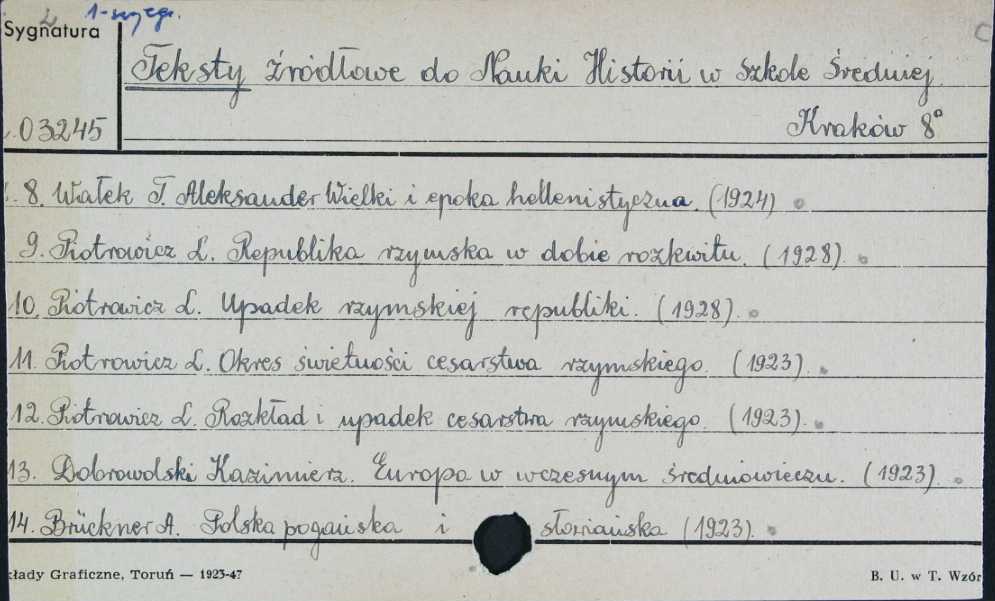 1-szy egz.
Sygnatura
Teksty źródłowe do Nauki Historii w Szkole Średniej.
03245
Kraków 8°
8. Wałek T. Aleksander Wielki i epoka hellenistyczna. (1924)
9. Piotrowicz L. Republika rzymska w dobie rozkwitu. (1928).
10. Piotrowicz L. Upadek rzymskiej republiki. (1928).
11. Piotrowicz L. Okres świetności cesarstwa rzymskiego. (1923).
12. Piotrowicz L. Rozkład i upadek cesarstwa rzymskiego. (1923).
13. Dobrowolski Kazimierz. Europa w wczesnym średniowieczu. (1923).
14. Brückner A. Polska pogańska i słowiańska (1923).
kłady Graficzne, Toruń — 1923-47
B. U. w T. Wzór